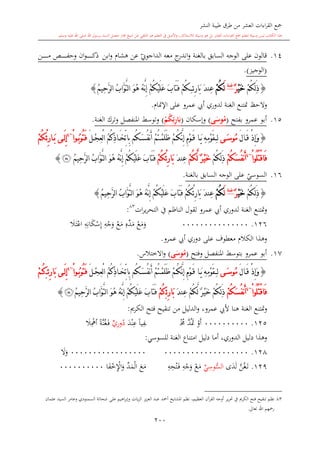 جمع القراءات العشر من طرق طيبة النشر
١٤. قالون على الوجه السابق بالغنة واندرج معه الداجوني عن هشام وابن ذكوان وحفص من
(الوجيز).
﴿ ذَٰلِكُمْ خَيْرٌ لَّكُمْ عِندَ بَارِئِكُمْ فَتَابَ عَلَيْكُمْ إِنَّهُ هُوَ التَّوَّابُ الرَّحِيمُ ﴾
ولاحظ تمتنع الغنة لدوري أبي عمرو على الإتمام.
١٥. أبو عمرو بفتح (مُوسَى) وإسكان (بَارِئْكُمْ) وتوسط المنفصل وترك الغنة.
﴿ وَإِذْ قَالَ مُوسَى لِقَوْمِهِ يَا قَوْمِ إِنَّكُمْ ظَلَمْتُمْ أَنفُسَكُم بِاتِّخَاذِكُمُ الْعِجْلَ فَتُوبُوا إِلَى بَارِئْكُمْ
فَاقْتُلُوا أَنفُسَكُمْ ذَٰلِكُمْ خَيْرٌ لَّكُمْ عِندَ بَارِئْكُمْ فَتَابَ عَلَيْكُمْ إِنَّهُ هُوَ التَّوَّابُ الرَّحِيمُ ﴾
١٦. السوسي على الوجه السابق بالغنة.
﴿ ذَٰلِكُمْ خَيْرٌ لَّكُمْ عِندَ بَارِئْكُمْ فَتَابَ عَلَيْكُمْ إِنَّهُ هُوَ التَّوَّابُ الرَّحِيمُ ﴾
وتمتنع الغنة لدوري أبي عمرو لقول الناظم في التحريرات:
١٢٦. .............. وَمَعْ مَدِّهِ مَعْ وَجْهِ إِسْكَانِهَا اعْتَلَا
وهذا الكلام معطوف على دوري أبي عمرو.
١٧. أبو عمرو بتوسط المنفصل وفتح (مُوسَى) والاختلاس.
﴿ وَإِذْ قَالَ مُوسَى لِقَوْمِهِ يَا قَوْمِ إِنَّكُمْ ظَلَمْتُمْ أَنفُسَكُم بِاتِّخَاذِكُمُ الْعِجْلَ فَتُوبُوا إِلَى بَارِئِكُمْ
فَاقْتُلُوا أَنفُسَكُمْ ذَٰلِكُمْ خَيْرٌ لَّكُمْ عِندَ بَارِئِكُمْ فَتَابَ عَلَيْكُمْ إِنَّهُ هُوَ التَّوَّابُ الرَّحِيمُ ﴾
وتمتنع الغنة هنا لأبي عمرو، والدليل من تنقيح فتح الكريم:
١٢٥. ..........
وهذا دليل الدوري، أما دليل امتناع الغنة للسوسي:
١٢٨. ................ ................ وَلَا
١٢٩. تَغُنَّ لَدَى السُّوسِيِّ مَعْ وَجْهِ فَتْحِهِ مَعَ الْمَدِّ وَالْإِخْفَا ..........
٢٠٠